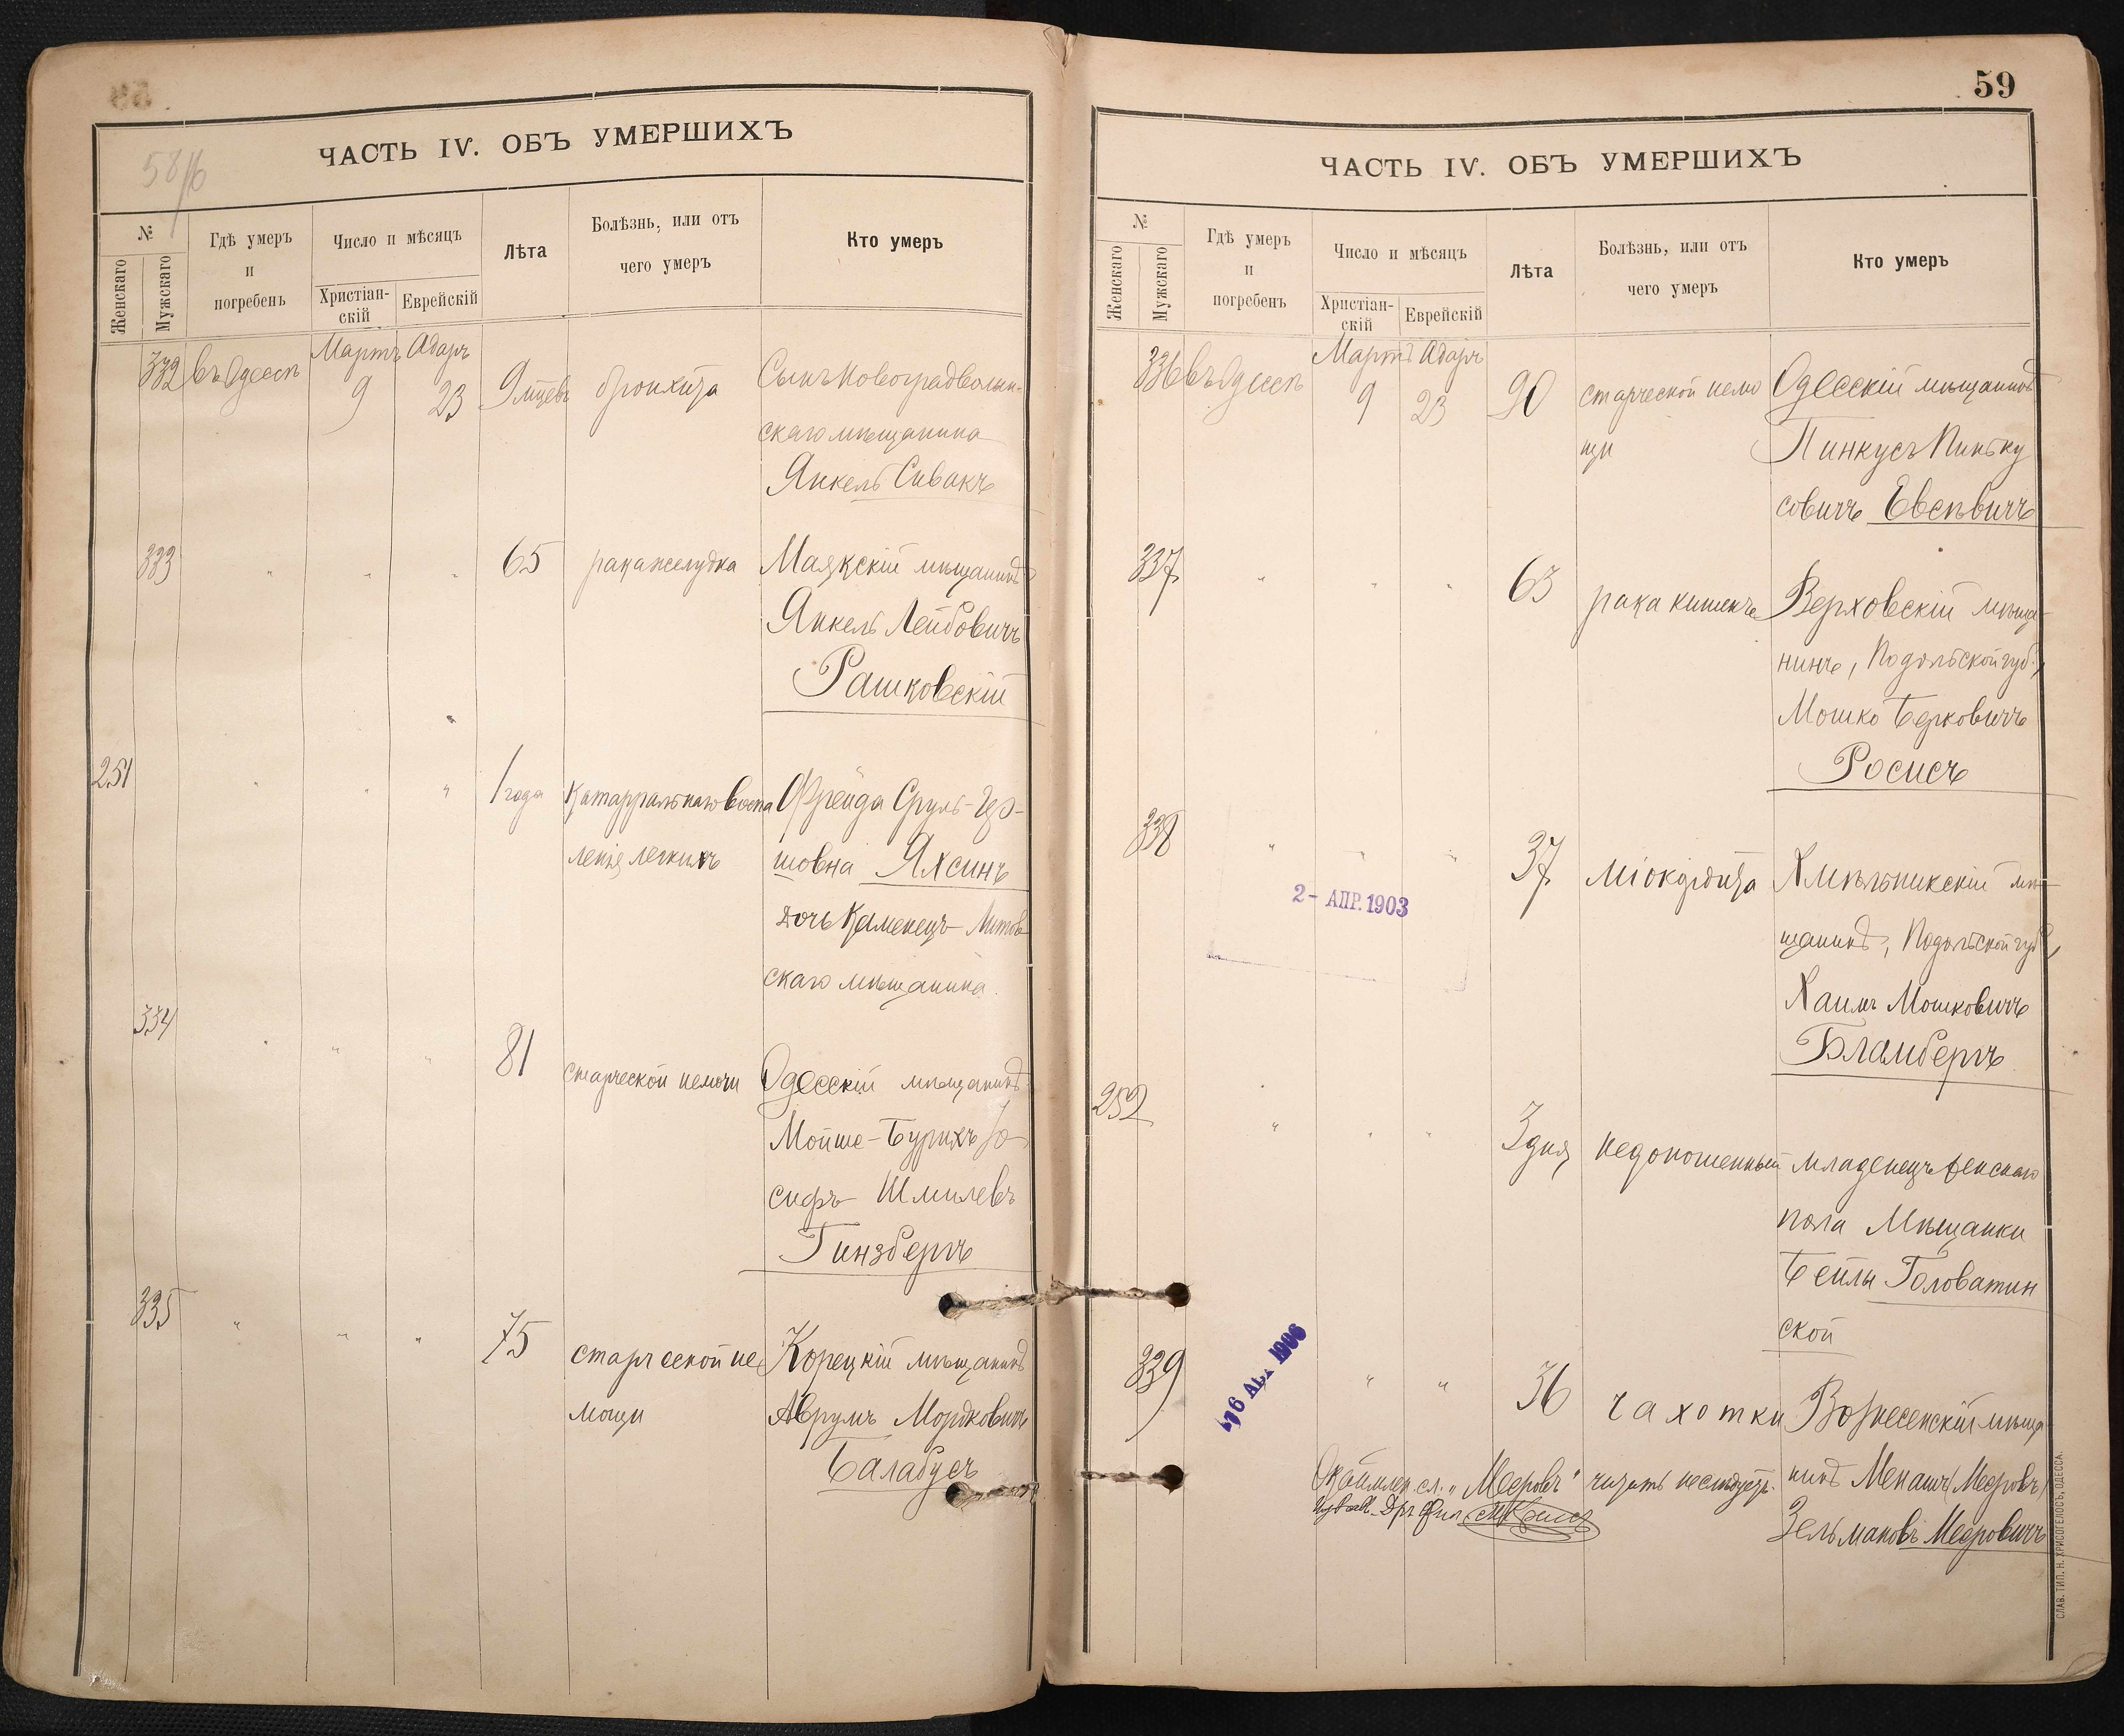 58/16
ЧАСТЬ IV. ОБЪ УМЕРШИХЪ
№
Женскаго
Мужскаго
Гдѣ умеръ
и
погребенъ
Число и мѣсяцъ
Христіан-
скій
Еврейскій
Лѣта
Болѣзнь, или отъ
чего умеръ
Кто умеръ
Мартъ Адаръ
332 въ Одессѣ 9 23 9 мцевъ бронхита Сынъ Новоградволын-
скаго мѣщанина
Янкель Сивакъ
333 " " " 65 рака желудка Маякскій мѣщанинъ
Янкель Лейбовичъ
Рашковскій
251 " " " 1 года катарральнаго воспа Фрейда Сруль-Гер-
ленія легкихъ шовна Яхсинъ
дочь Каменецъ-Литов
скаго мѣщанина.
334 " " " 81 старческой немочи Одесскій мѣщанинъ
Мойше-Бурихъ Іо
сифъ Шмилевъ
Гинзбергъ
335 " " " 75 старческой не Корецкій мѣщанинъ
мощи Аврумъ Мордковичъ
Балабусъ
59
ЧАСТЬ IV. ОБЪ УМЕРШИХЪ
№
Женскаго
Мужскаго
Гдѣ умеръ
и
погребенъ
Число и мѣсяцъ
Христіан-
скій
Еврейскій
Лѣта
Болѣзнь, или отъ
чего умеръ
Кто умеръ
Мартъ Адаръ
336 въ Одессѣ 9 23 90 старческой немо Одесскій мѣщанинъ
щи Пинкусъ Пинку
совичъ Евсѣвичъ
337 " " " 63 рака кишекъ Верховскій мѣща
нинъ, Подольской губ.,
Мошко Берковичъ
Росисъ
338 " " " 37 міокардита Хмѣльникскій мѣ
щанинъ, Подольской губ.,
Хаимъ Мошковичъ
Бламбергъ
2- АПР. 1903
252 " " " 3 дня недоношенный младенецъ женскаго
пола Мѣщанки
Бейлы Головатин
ской
339 " " 36 чахотки Вознесенскій мѣща
нинъ Менашъ (Меровъ)
Зельмановъ Меровичъ
1906
сл. "Меровъ" читать не слѣдуетъ.
СЛАВ. ТИП. Н. ХРИСОГЕЛОСЪ, ОДЕССА.